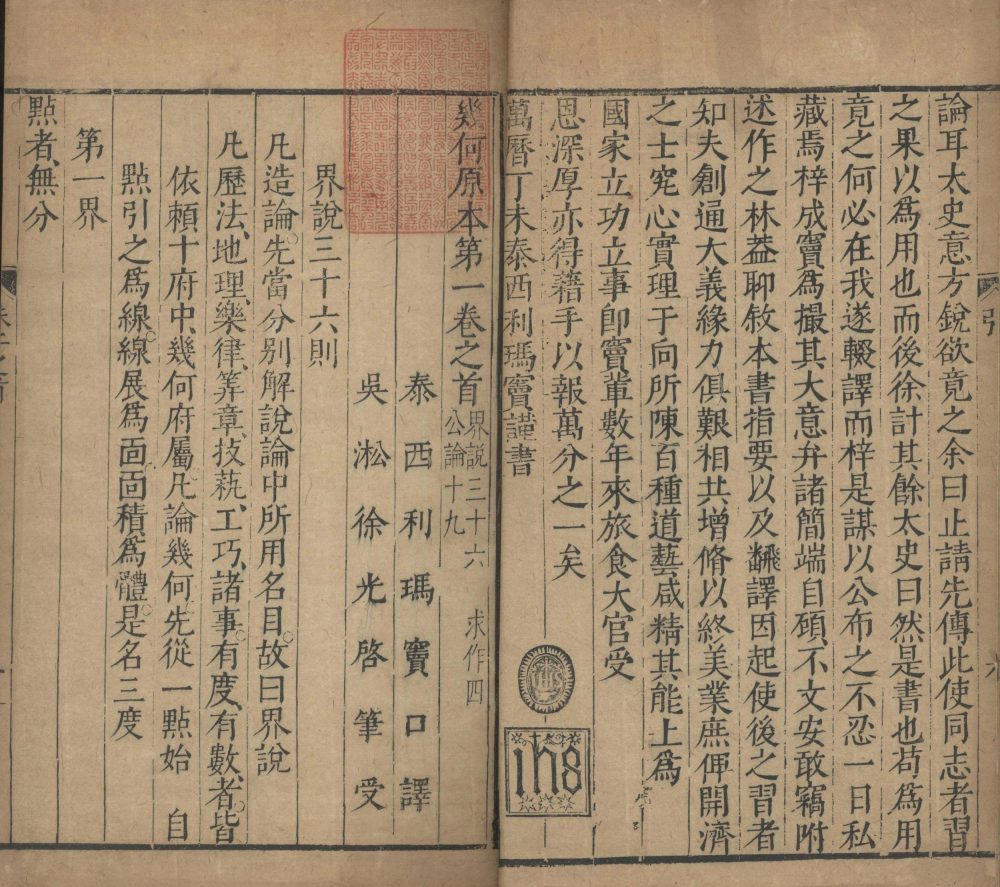 論耳太史意方銳欲竟之余曰止請先傳此使同志者習
之果以爲用也而後徐計其餘太史曰然是書也苟爲用
竟之何必在我遂輟譯而梓是謀以公布之不忍一日私
藏焉梓成竇爲撮其大意弁諸簡端自顧不文安敢竊附
述作之林葢聊敘本書指要以及翻譯因起使後之習者
知夫創通大義緣力俱艱相共增脩以終美業庶俾開濟
之士究心實理于向所陳百種道藝咸精其能上爲
國家立功立事卽竇輩數年來旅食大官受
恩深厚亦得藉手以報萬分之一矣
萬曆丁未泰西利瑪竇謹書
ihs
引
幾何原本第一卷之首 界說三十六 公論十九 求作四
泰西利瑪竇口譯
吳淞徐光啓筆受
界說三十六則
凡造論、先當分别解說論中所用名目。故曰界說
凡歷法、地理、樂律、筭章、技藝、工巧、諸事。有度、有數者。皆
依頼十府中、幾何府屬。凡論幾何。先從一點始 自
點引之爲線。線展爲面。面積、爲體。是名三度
第一界
點者、無分